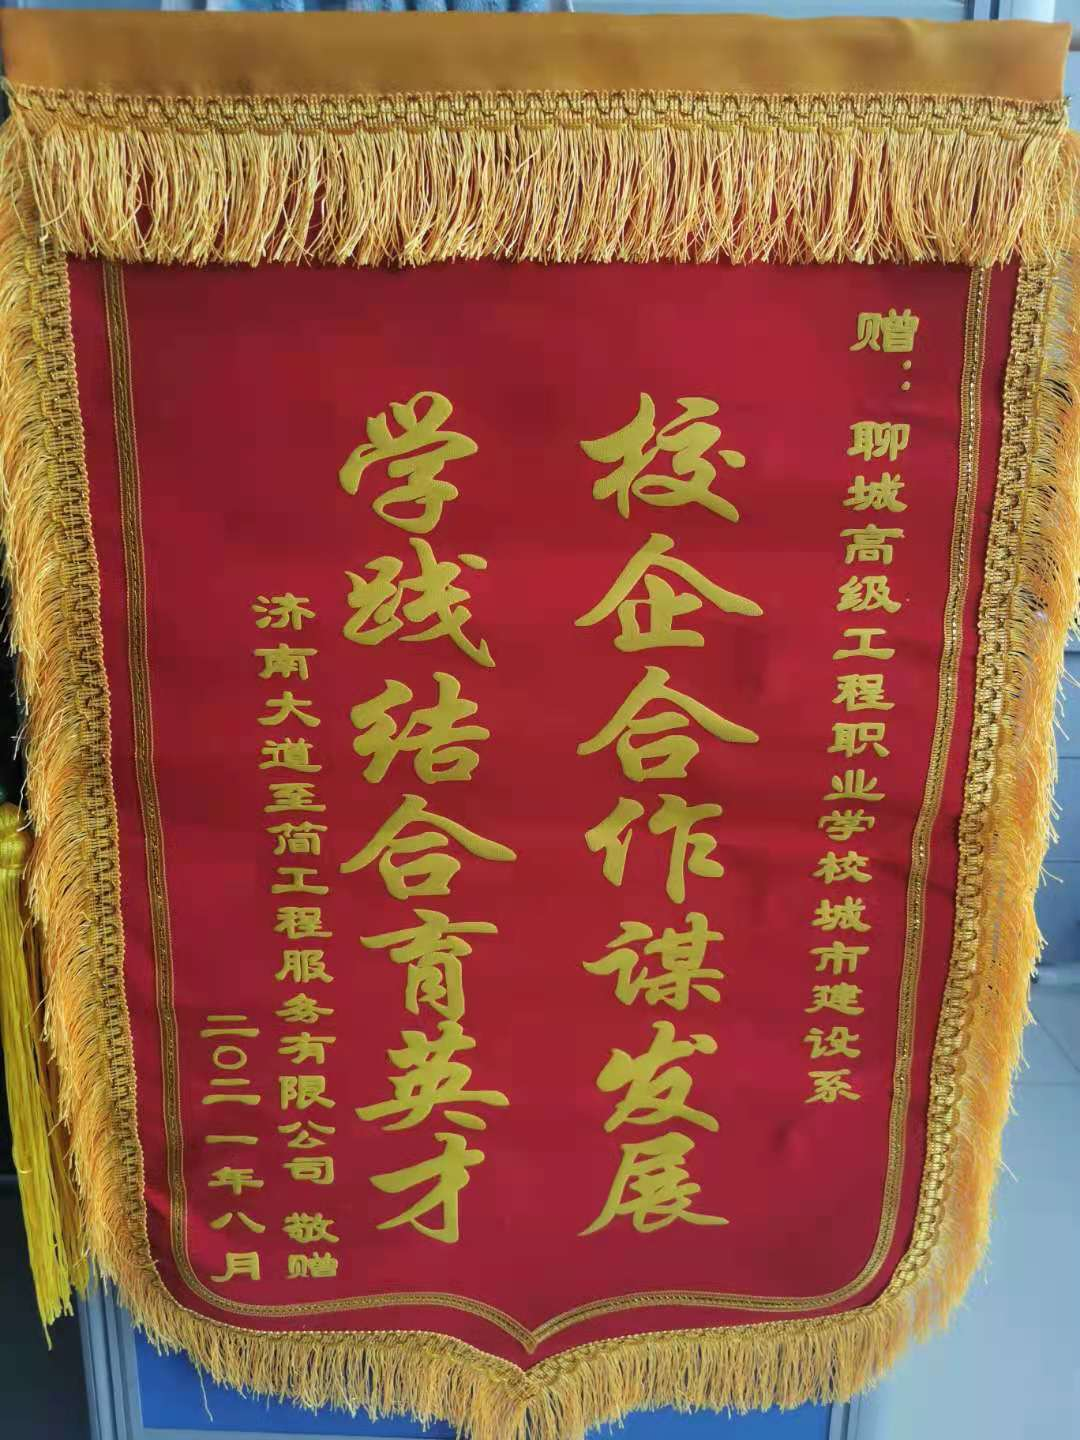 赠：聊城高级工程职业学校城市建设系
校企合作谋发展
学践结合育英才
济南大道至简工程服务有限公司 敬赠
二〇二一年八月